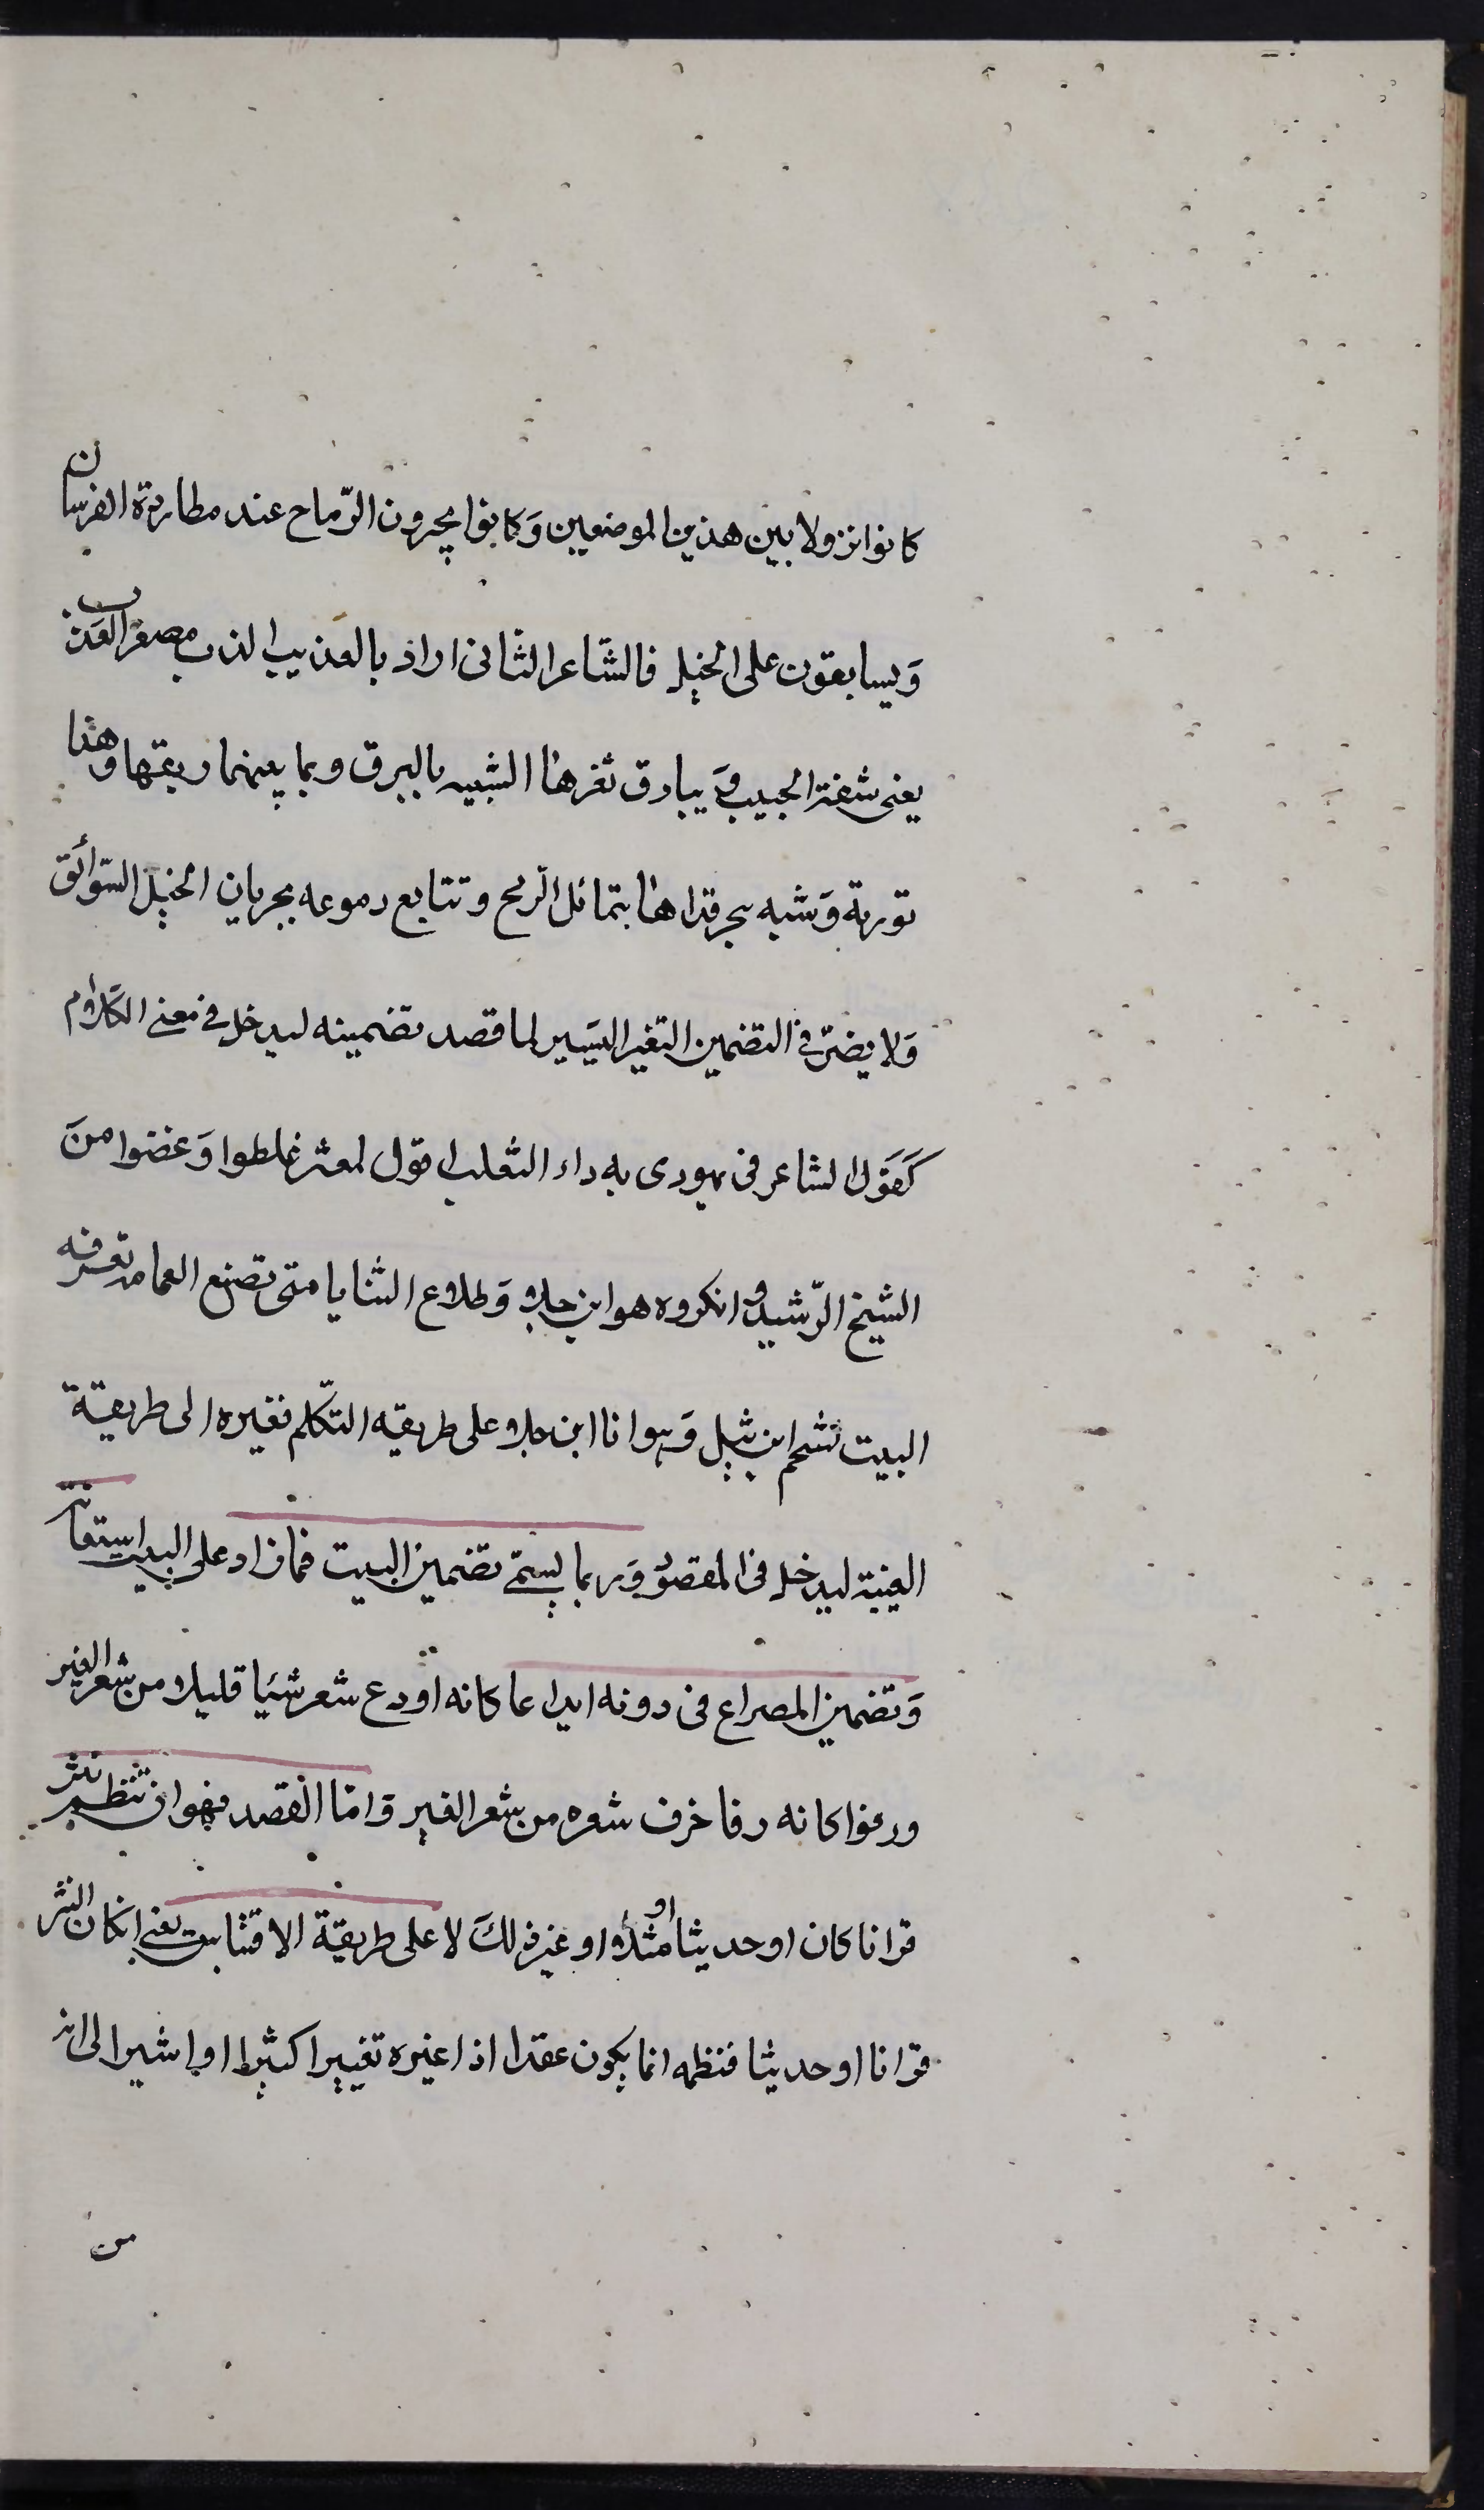 كانوا نزولا بين هذين الموضعين وَكانوا يجرون الرّماح عند مطاردة الفرسان
وَيسابقون على الخيل فالشاعر الثانى اراد بالعذيب الذى مصغر العذب
يعنى شفة الحبيب وَ يبارق ثغرها الشبيه بالبرق وبما بينهما ريقها وهذا
تورية وَشبه تبختر قدها بتمائل الرمح وتتابع دموعه بجريان الخيل السّوائق
وَلا يضرّ فى التضمين التغير اليسير لما قصد تضمينه ليدخل فى معنى الكلام
كَقَول الشاعر فى يهودى به داء الثعلب اقول لمعشر غلطوا وَغضوا منَ
الشيخ الرّشيد وانكروه هو ابن جلا وَطلاع الثنايا متى تضع العمامة تعرفه
البيت لشحم ابن شيل وَهو انا ابن جلا على طريقه التكلّم فغيره الى طريقة
الغيبة ليدخل فى المقصود وَربما يسمّى تضمين البيت فما زاد على البيت استعانة
وَتضمين المصراع فى دونه ايداعا كانه اودع شعر شيئا قليلا من شعر الغير
ورفوا كانه رفا خرف شعره من شعر الغير وَامّا القصد فهوان تنظم نثر
قرانا كان او حديثا او مثلا او غير ذلكَ لا على طريقة الاقتباس يعنى انكان النثر
قرانا او حديثا فنظمه انما يكون عقدا اذا غيره تغييرا كثيرا او اشير الى انه
من